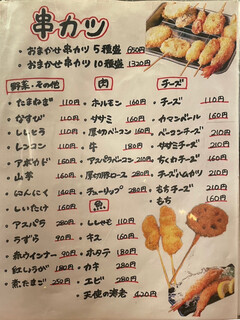 串カツ
おまかせ串カツ 5種盛 650円
おまかせ串カツ 10種盛 1320円
野菜・その他
たまねぎ 110円
なすび 110円
ししとう 110円
レンコン 110円
アボカド 160円
山芋 160円
にんにく 160円
しいたけ 160円
アスパラ 280円
うずら 90円
赤ウインナー 90円
紅しょうが 180円
煮たまご 250円
肉
ホルモン 160円
ササミ 160円
厚切ベーコン 160円
牛 180円
アスパラベーコン 210円
厚切豚ロース 280円
チューリップ 280円
魚
ししゃも 110円
キス 160円
ホタテ 180円
カキ 280円
エビ 280円
天使の海老 420円
チーズ
チーズ 110円
カマンベール 160円
ベーコンチーズ 210円
ササミチーズ 210円
ちくわチーズ 160円
チーズハムカツ 210円
もちチーズ 210円
もち 160円